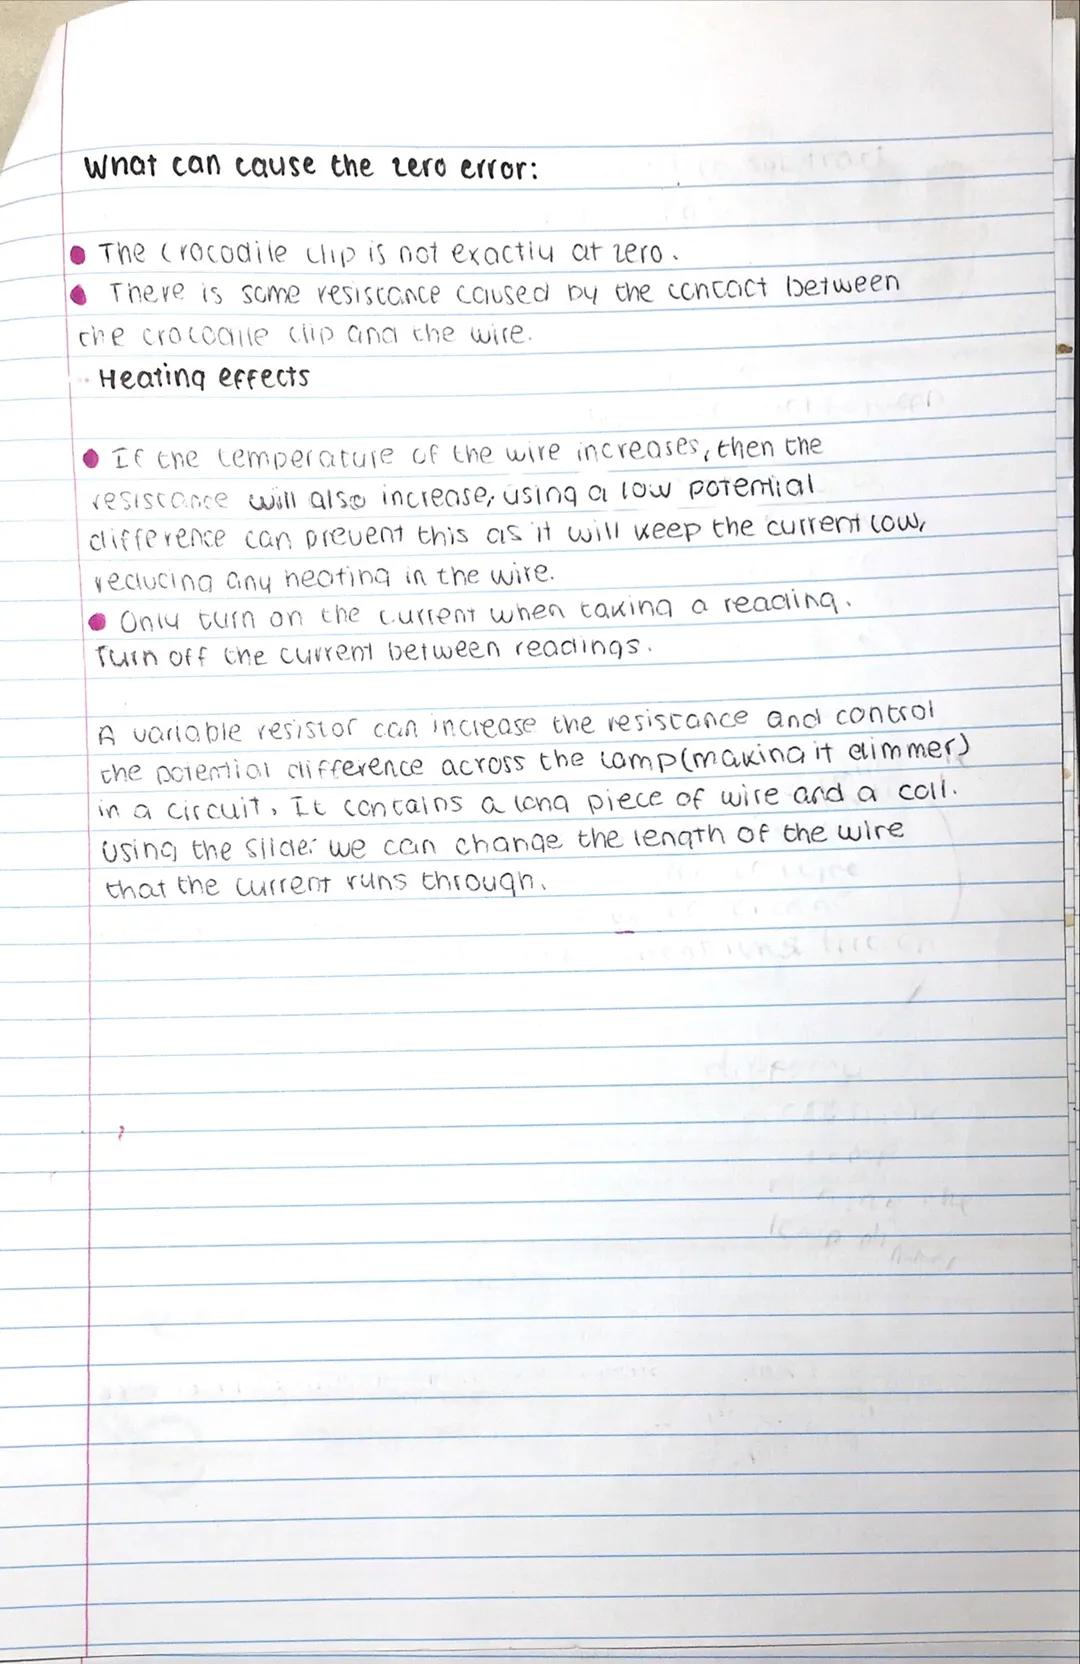 What can cause the zero error:
● The crocodile clip is not exactly at zero.
● There is some resistance caused by the contact between
the crocodile clip and the wire.
Heating effects
● If the temperature of the wire increases, then the
resistance will also increase, using a low potential
difference can prevent this as it will keep the current low,
reducing any heating in the wire.
● Only turn on the current when taking a reading.
Turn off the current between readings.
A variable resistor can increase the resistance and control
the potential difference across the lamp (making it dimmer)
in a circuit, It contains a long piece of wire and a coil.
Using the slider we can change the length of the wire
that the current runs through.